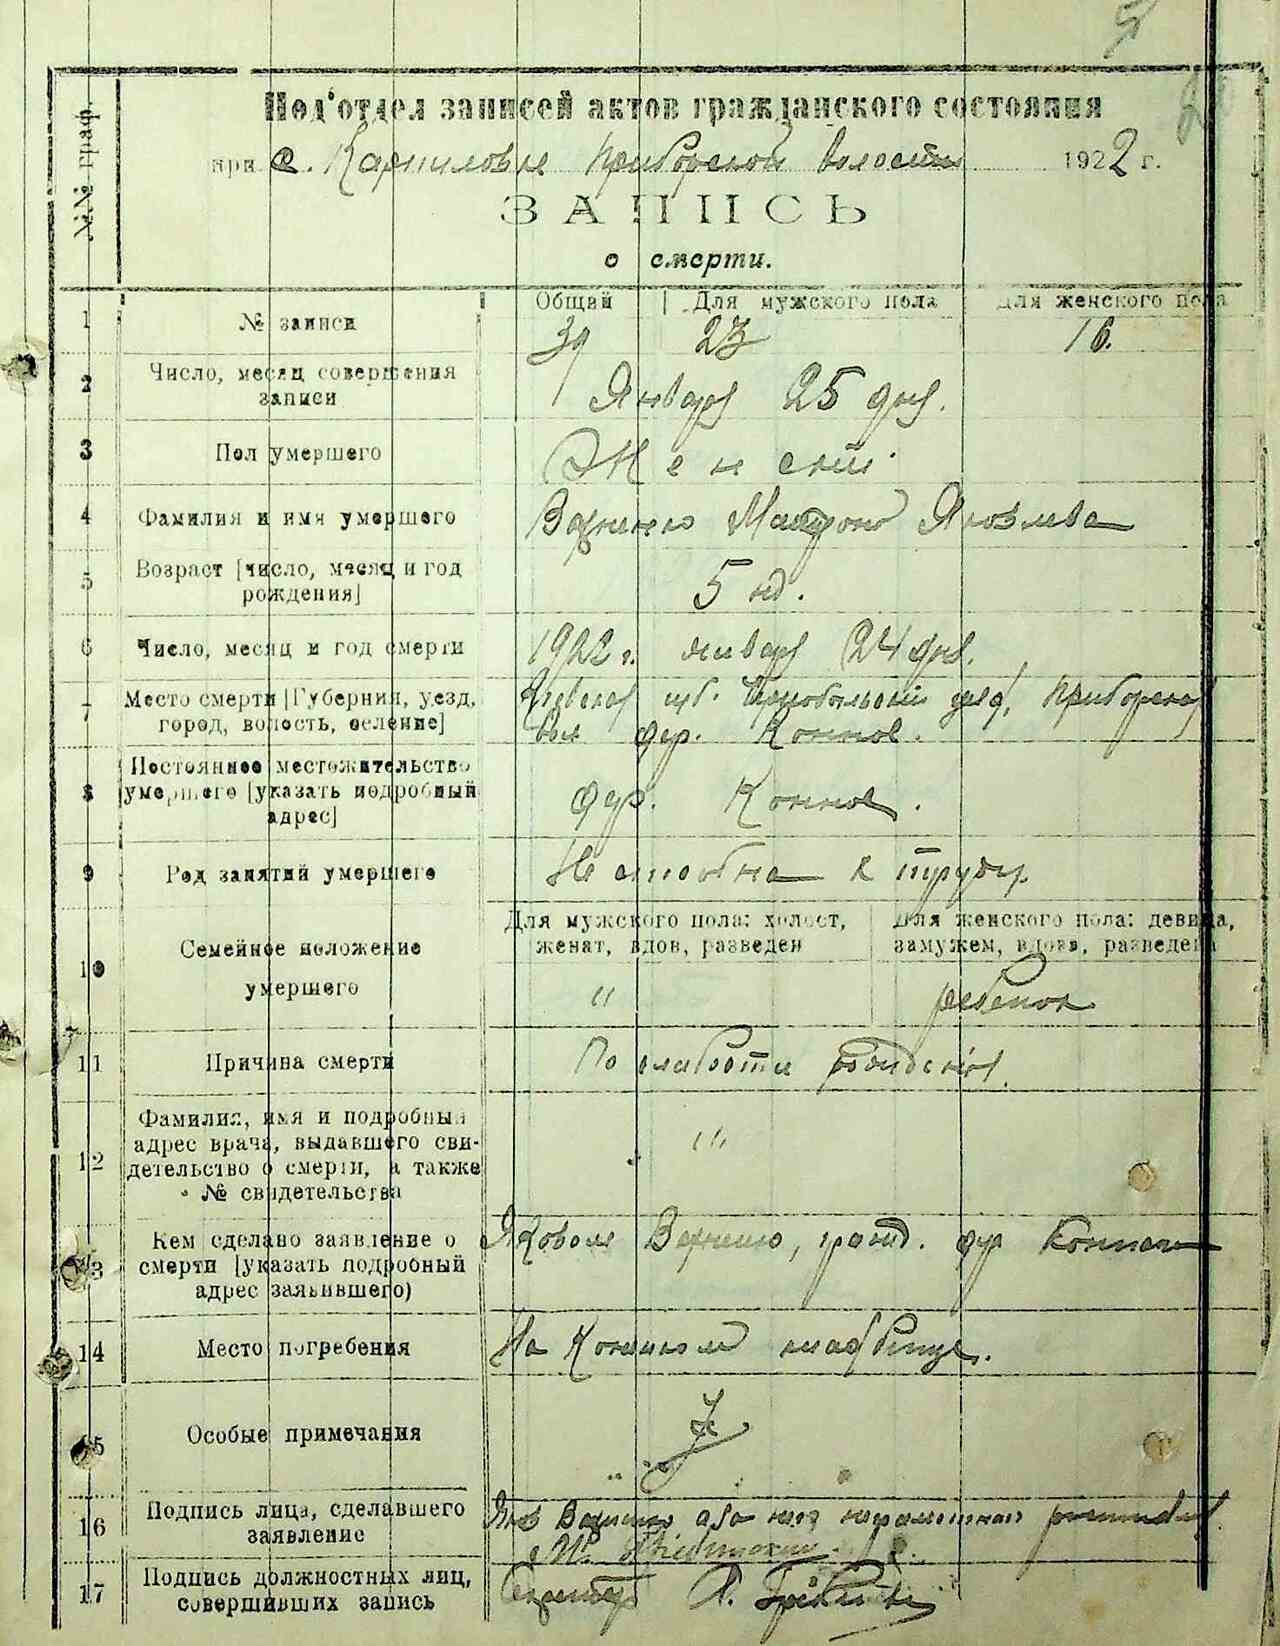 Под'отдел записей актов гражданского состояния
при с. Карпиловке Приборской волости 1922 г.
№№ граф.
ЗАПИСЬ
о смерти.
Общий Для мужского пола Для женского пола
1 № записи 39 23 16.
2 Число, месяц совершения
записи Января 25 дня.
3 Пол умершего Женский
4 Фамилия и имя умершего Матрона Яковлева
5 Возраст [число, месяц и год
рождения] 5 нд.
6 Число, месяц и год смерти 1922 г. января 24 дня.
7 Место смерти [Губерния, уезд,
город, волость, селение]
Киевская губ. Чернобыльский уезд, Приборская
вол дер.
8 Постоянное местожительство
умершего [указать подробный
адрес] дер.
9 Род занятий умершего Не способна к труду
Для мужского пола: холост,
женат, вдов, разведен
Для женского пола: девица,
замужем, вдова, разведена
10 Семейное положение
умершего " ребенок
11 Причина смерти По слабости рождения
12 Фамилия, имя и подробный
адрес врача, выдавшего сви-
детельство о смерти, а также
№ свидетельства "
13 Кем сделано заявление о
смерти [указать подробный
адрес заявившего) Яковом гражд. дер
14 Место погребения На кладбище.
15 Особые примечания
16 Подпись лица, сделавшего
заявление Яков а за него неграмотного
17 Подпись должностных лиц,
совершивших запись Секретарь